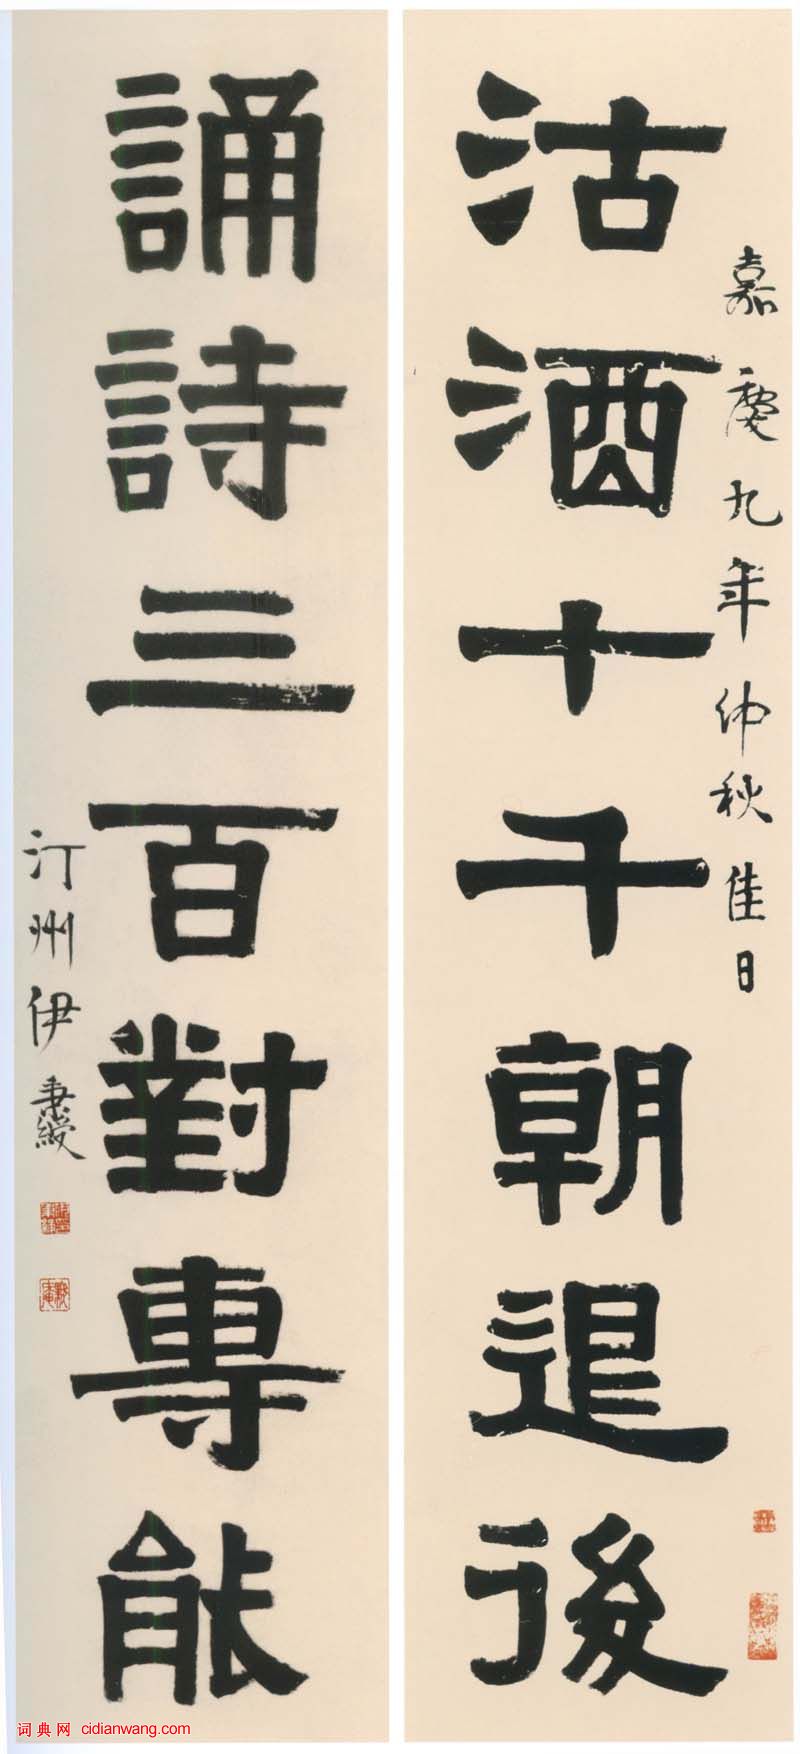 嘉慶九年仲秋佳日
沽酒十千朝退後
誦詩三百對專能
汀州伊秉綬
词典网 cidianwang.com